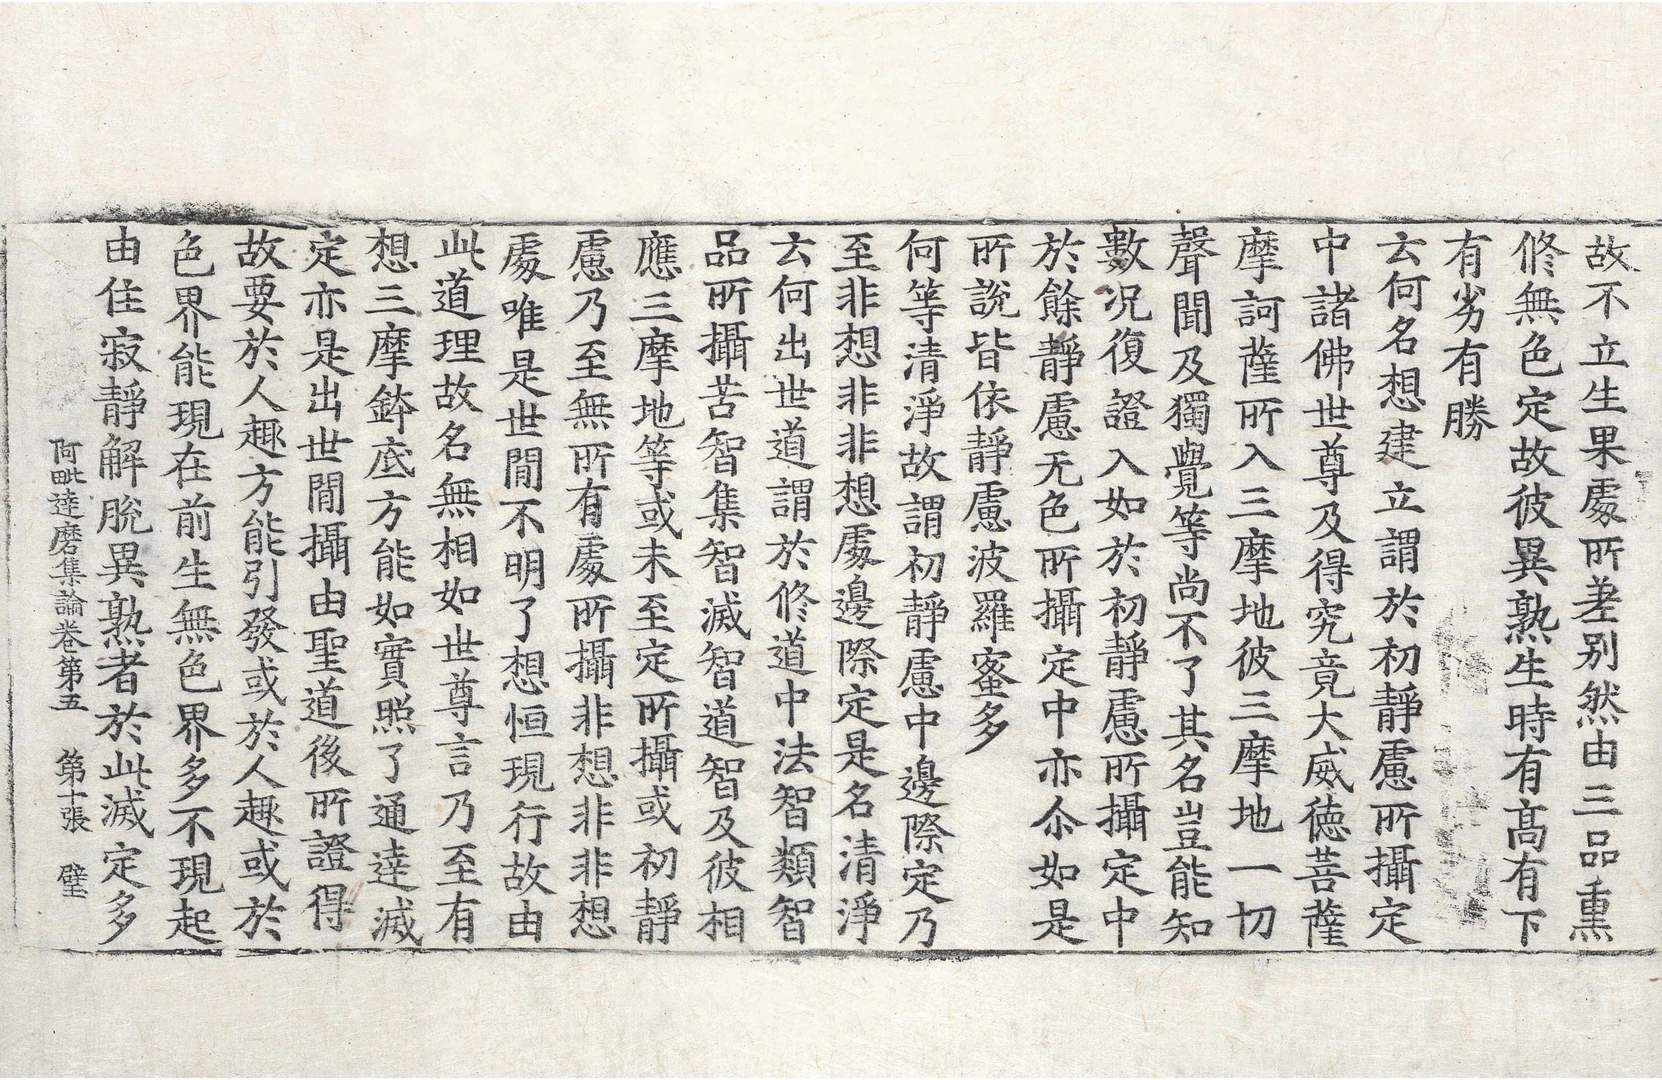 故不立生果處所差别然由三品熏
修無色定故彼異熟生時有高有下
有劣有勝
云何名想建立謂於初靜慮所攝定
中諸佛世尊及得究竟大威德菩薩
摩訶薩所入三摩地彼三摩地一切
聲聞及獨覺等尚不了其名豈能知
數况復證入如於初靜慮所攝定中
於餘靜慮无色所攝定中亦尒如是
所說皆依靜慮波羅蜜多
何等清淨故謂初靜慮中邊際定乃
至非想非非想處邊際定是名清淨
云何出世道謂於修道中法智類智
品所攝苦智集智滅智道智及彼相
應三摩地等或未至定所攝或初靜
慮乃至無所有處所攝非想非非想
處唯是世間不明了想恒現行故由
此道理故名無相如世尊言乃至有
想三摩鉢底方能如實照了通達滅
定亦是出世間攝由聖道後所證得
故要於人趣方能引發或於人趣或於
色界能現在前生無色界多不現起
由住寂靜解脫異熟者於此滅定多
阿毗達磨集論卷第五 第十張 壁